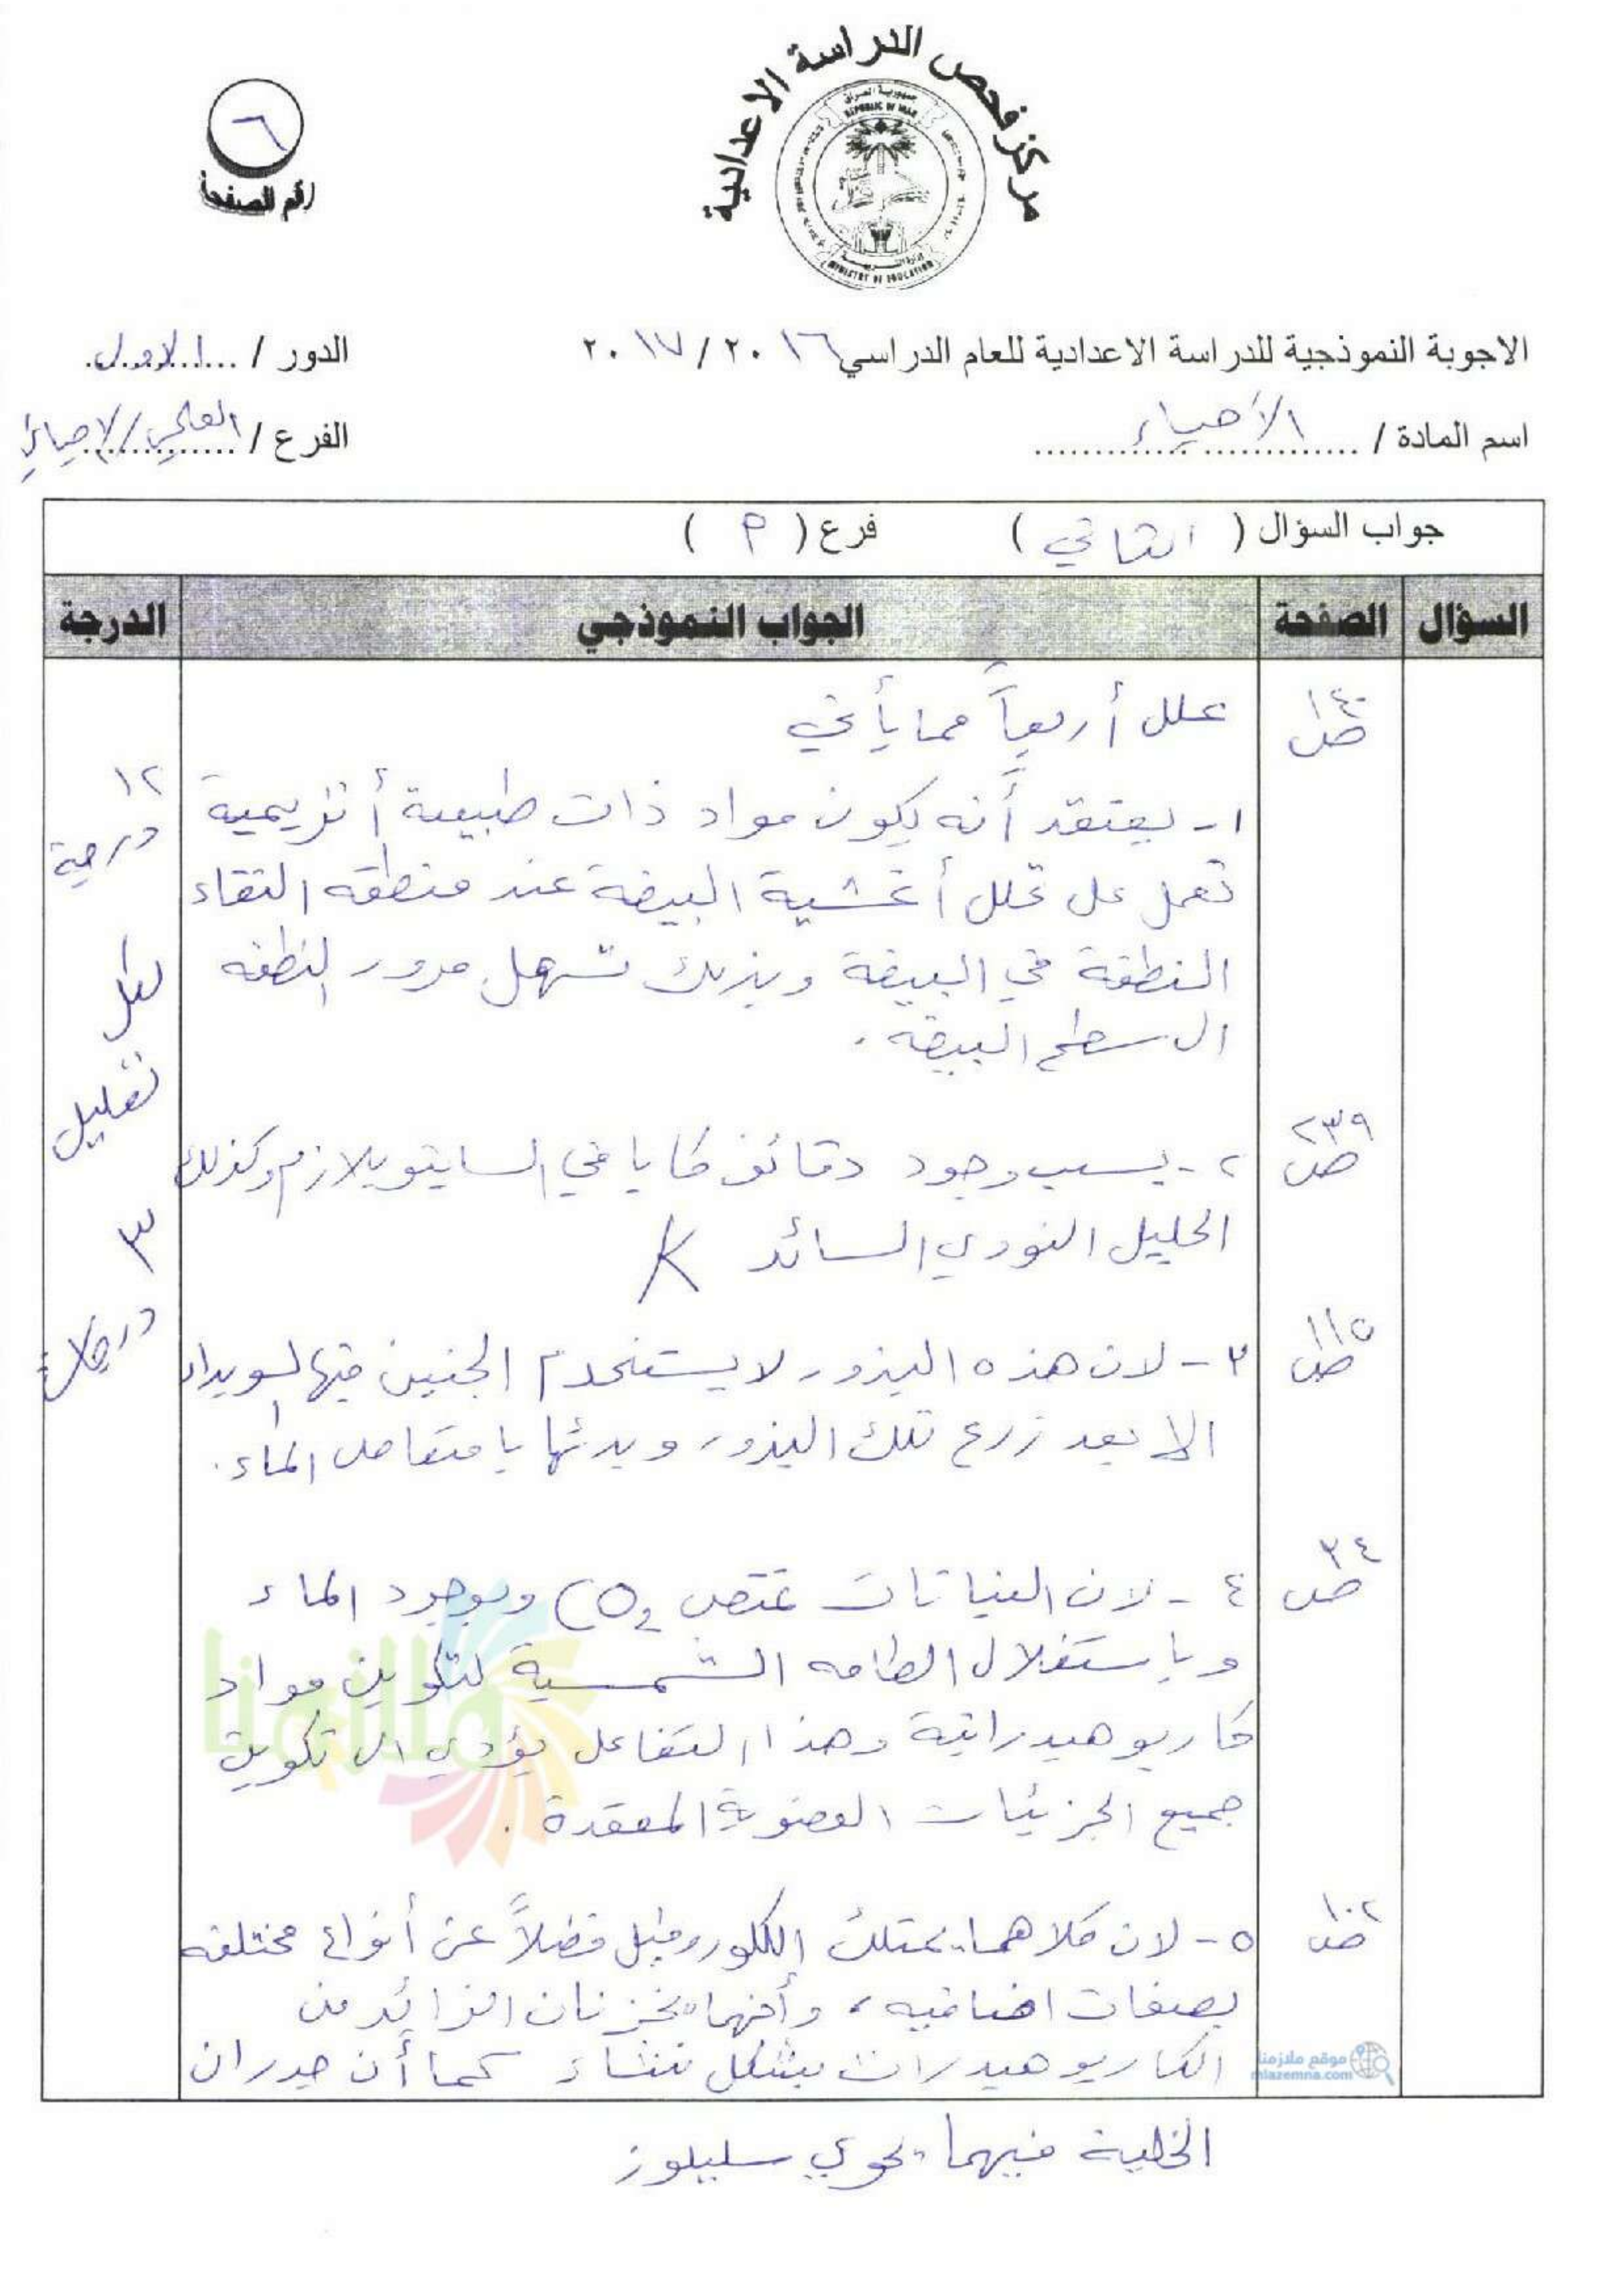 مركز فحص الدراسة الاعدادية
جمهورية العراق
REPUBLIC OF IRAQ
وزارة التربية
MINISTRY OF EDUCATION
٦
رقم الصفحة
الاجوبة النموذجية للدراسة الاعدادية للعام الدراسي ٢٠١٦ / ٢٠١٧
الدور / الاول
اسم المادة / الأحياء
الفرع / العلمي/الاحيائي
جواب السؤال ( الثاني ) فرع ( P )
السؤال الصفحة الجواب النموذجي الدرجة
ص١٤٠ علل أربعاً مما يأتي
١- يعتقد أنه يكون مواد ذات طبيعة أنزيمية
١٢ درجة
تعمل على تحلل أغشية البيضة عند منطقة التقاء
النطفة في البيضة وبذلك تسهل مرور النطفة
الى سطح البيضة .
لكل تعليل ٣ درجات
ص٢٣٩ ٢- بسبب وجود دقائق كابا في السايتوبلازم وكذلك
الحليل النووي السائد K
ص١١٥ ٣- لان هذه البذور لا يستخدم الجنين فيها لسويداء
الا بعد زرع تلك البذور وبدئها بامتصاص الماء.
ص٣٤ ٤- لان النباتات تمتص CO2 وبوجود الماء
وباستغلال الطاقه الشمسية لتكوين مواد
كاربوهيدراتية وهذا التفاعل يؤدي الى تكوين
جميع الجزيئات العضوية المعقدة .
ص١٠٢ ٥- لان كلاهما يمتلك الكلوروفيل فضلاً عن أنواع مختلفه
بصفات اضافيه ، وأنهما يخزنان الزائد من
الكاربوهيدرات بشكل نشاء كما أن جدران
الخلية فيهما يحوي سليلوز
ملازمنا
موقع ملازمنا
mlazemna.com